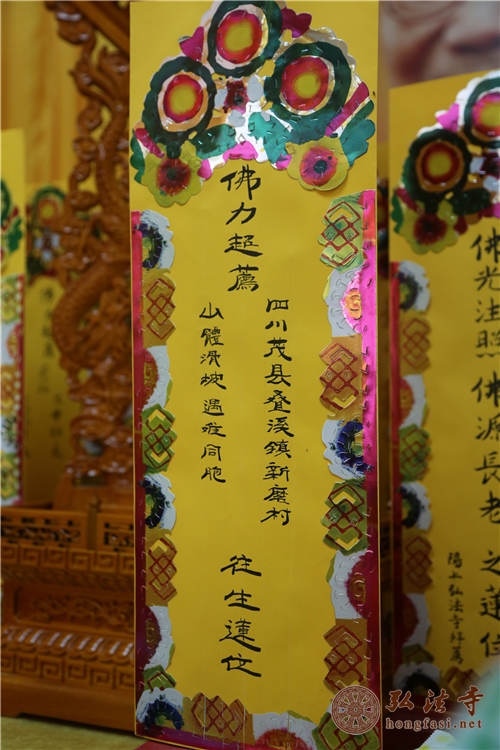 佛力超薦
四川茂县叠溪鎮新磨村
山體滑坡遇难同胞
往生蓮位
佛光注照 佛源長老 之蓮位
陽上弘法寺拜薦
弘法寺
hongfasi.net